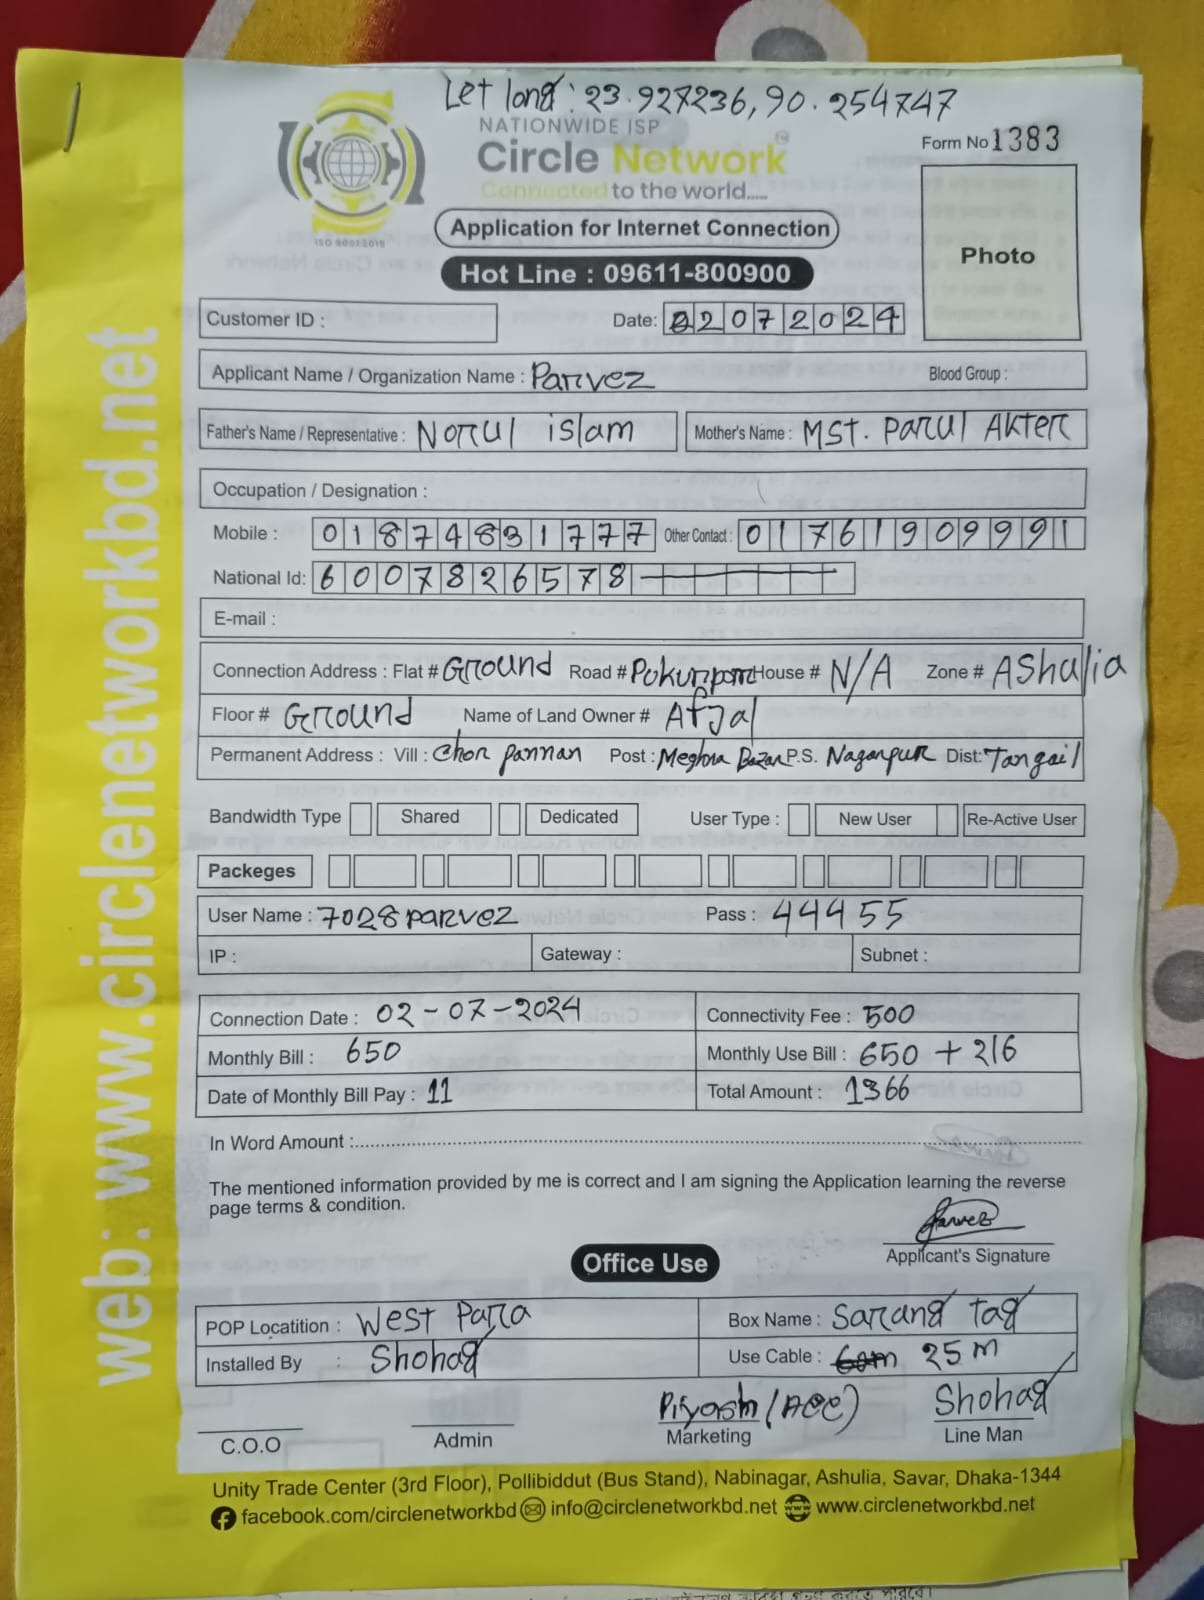 Let long: 23.927236, 90.254747
NATIONWIDE ISP
Circle Network
Connected to the world.....
ISO 9001:2015
Form No 1383
Application for Internet Connection
Photo
Hot Line : 09611-800900
Customer ID :
Date: 02072024
Applicant Name / Organization Name : Parvez Blood Group :
Father's Name / Representative : Norul islam Mother's Name : MST. Parul Akter
Occupation / Designation :
Mobile : 01874831777 Other Contact : 01761909991
National Id: 6007826578
E-mail :
Connection Address : Flat # Ground Road # Pukurparr House # N/A Zone # AShalia
Floor # Ground Name of Land Owner # Afjal
Permanent Address : Vill : Chor Pannan Post : Meghna Bazar P.S. Nagarpur Dist: Tangail
Bandwidth Type Shared Dedicated User Type : New User Re-Active User
Packeges
User Name : 7028parvez Pass : 44455
IP : Gateway : Subnet :
Connection Date : 02-07-2024 Connectivity Fee : 500
Monthly Bill : 650 Monthly Use Bill : 650 + 216
Date of Monthly Bill Pay : 11 Total Amount : 1366
In Word Amount :
The mentioned information provided by me is correct and I am signing the Application learning the reverse
page terms & condition.
Parvez
Applicant's Signature
Office Use
POP Locatition : West Para Box Name : Sarang Tag
Installed By : Shohag Use Cable : 25 m
Piyash (ACC) Shohag
C.O.O Admin Marketing Line Man
Unity Trade Center (3rd Floor), Pollibiddut (Bus Stand), Nabinagar, Ashulia, Savar, Dhaka-1344
facebook.com/circlenetworkbd info@circlenetworkbd.net www.circlenetworkbd.net
web: www.circlenetworkbd.net